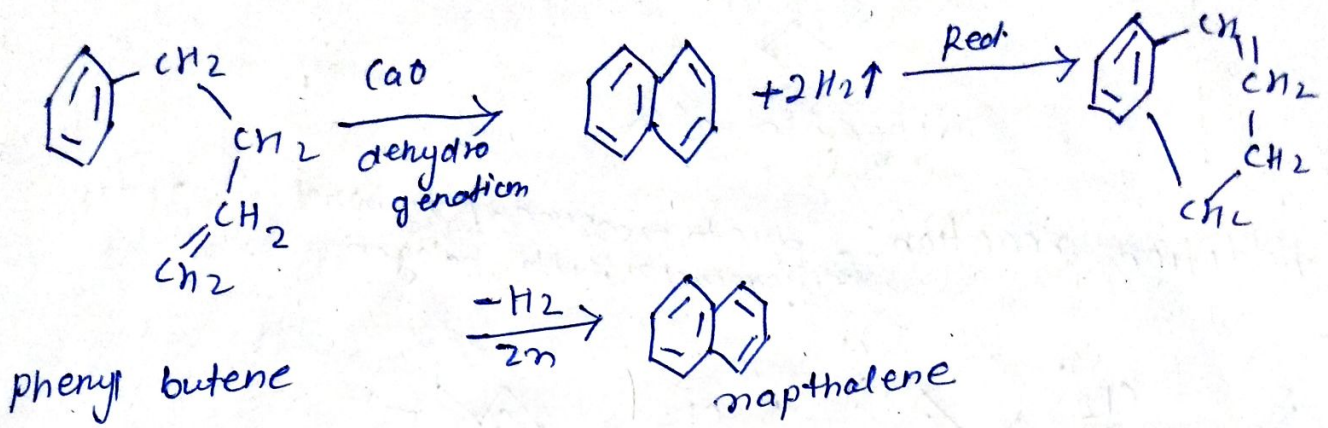 CH2
CH2
CH2
CH2
CaO
dehydro
genation
+2H2↑
Red.
CH
CH2
CH2
CH2
-H2
Zn
phenyl butene
napthalene